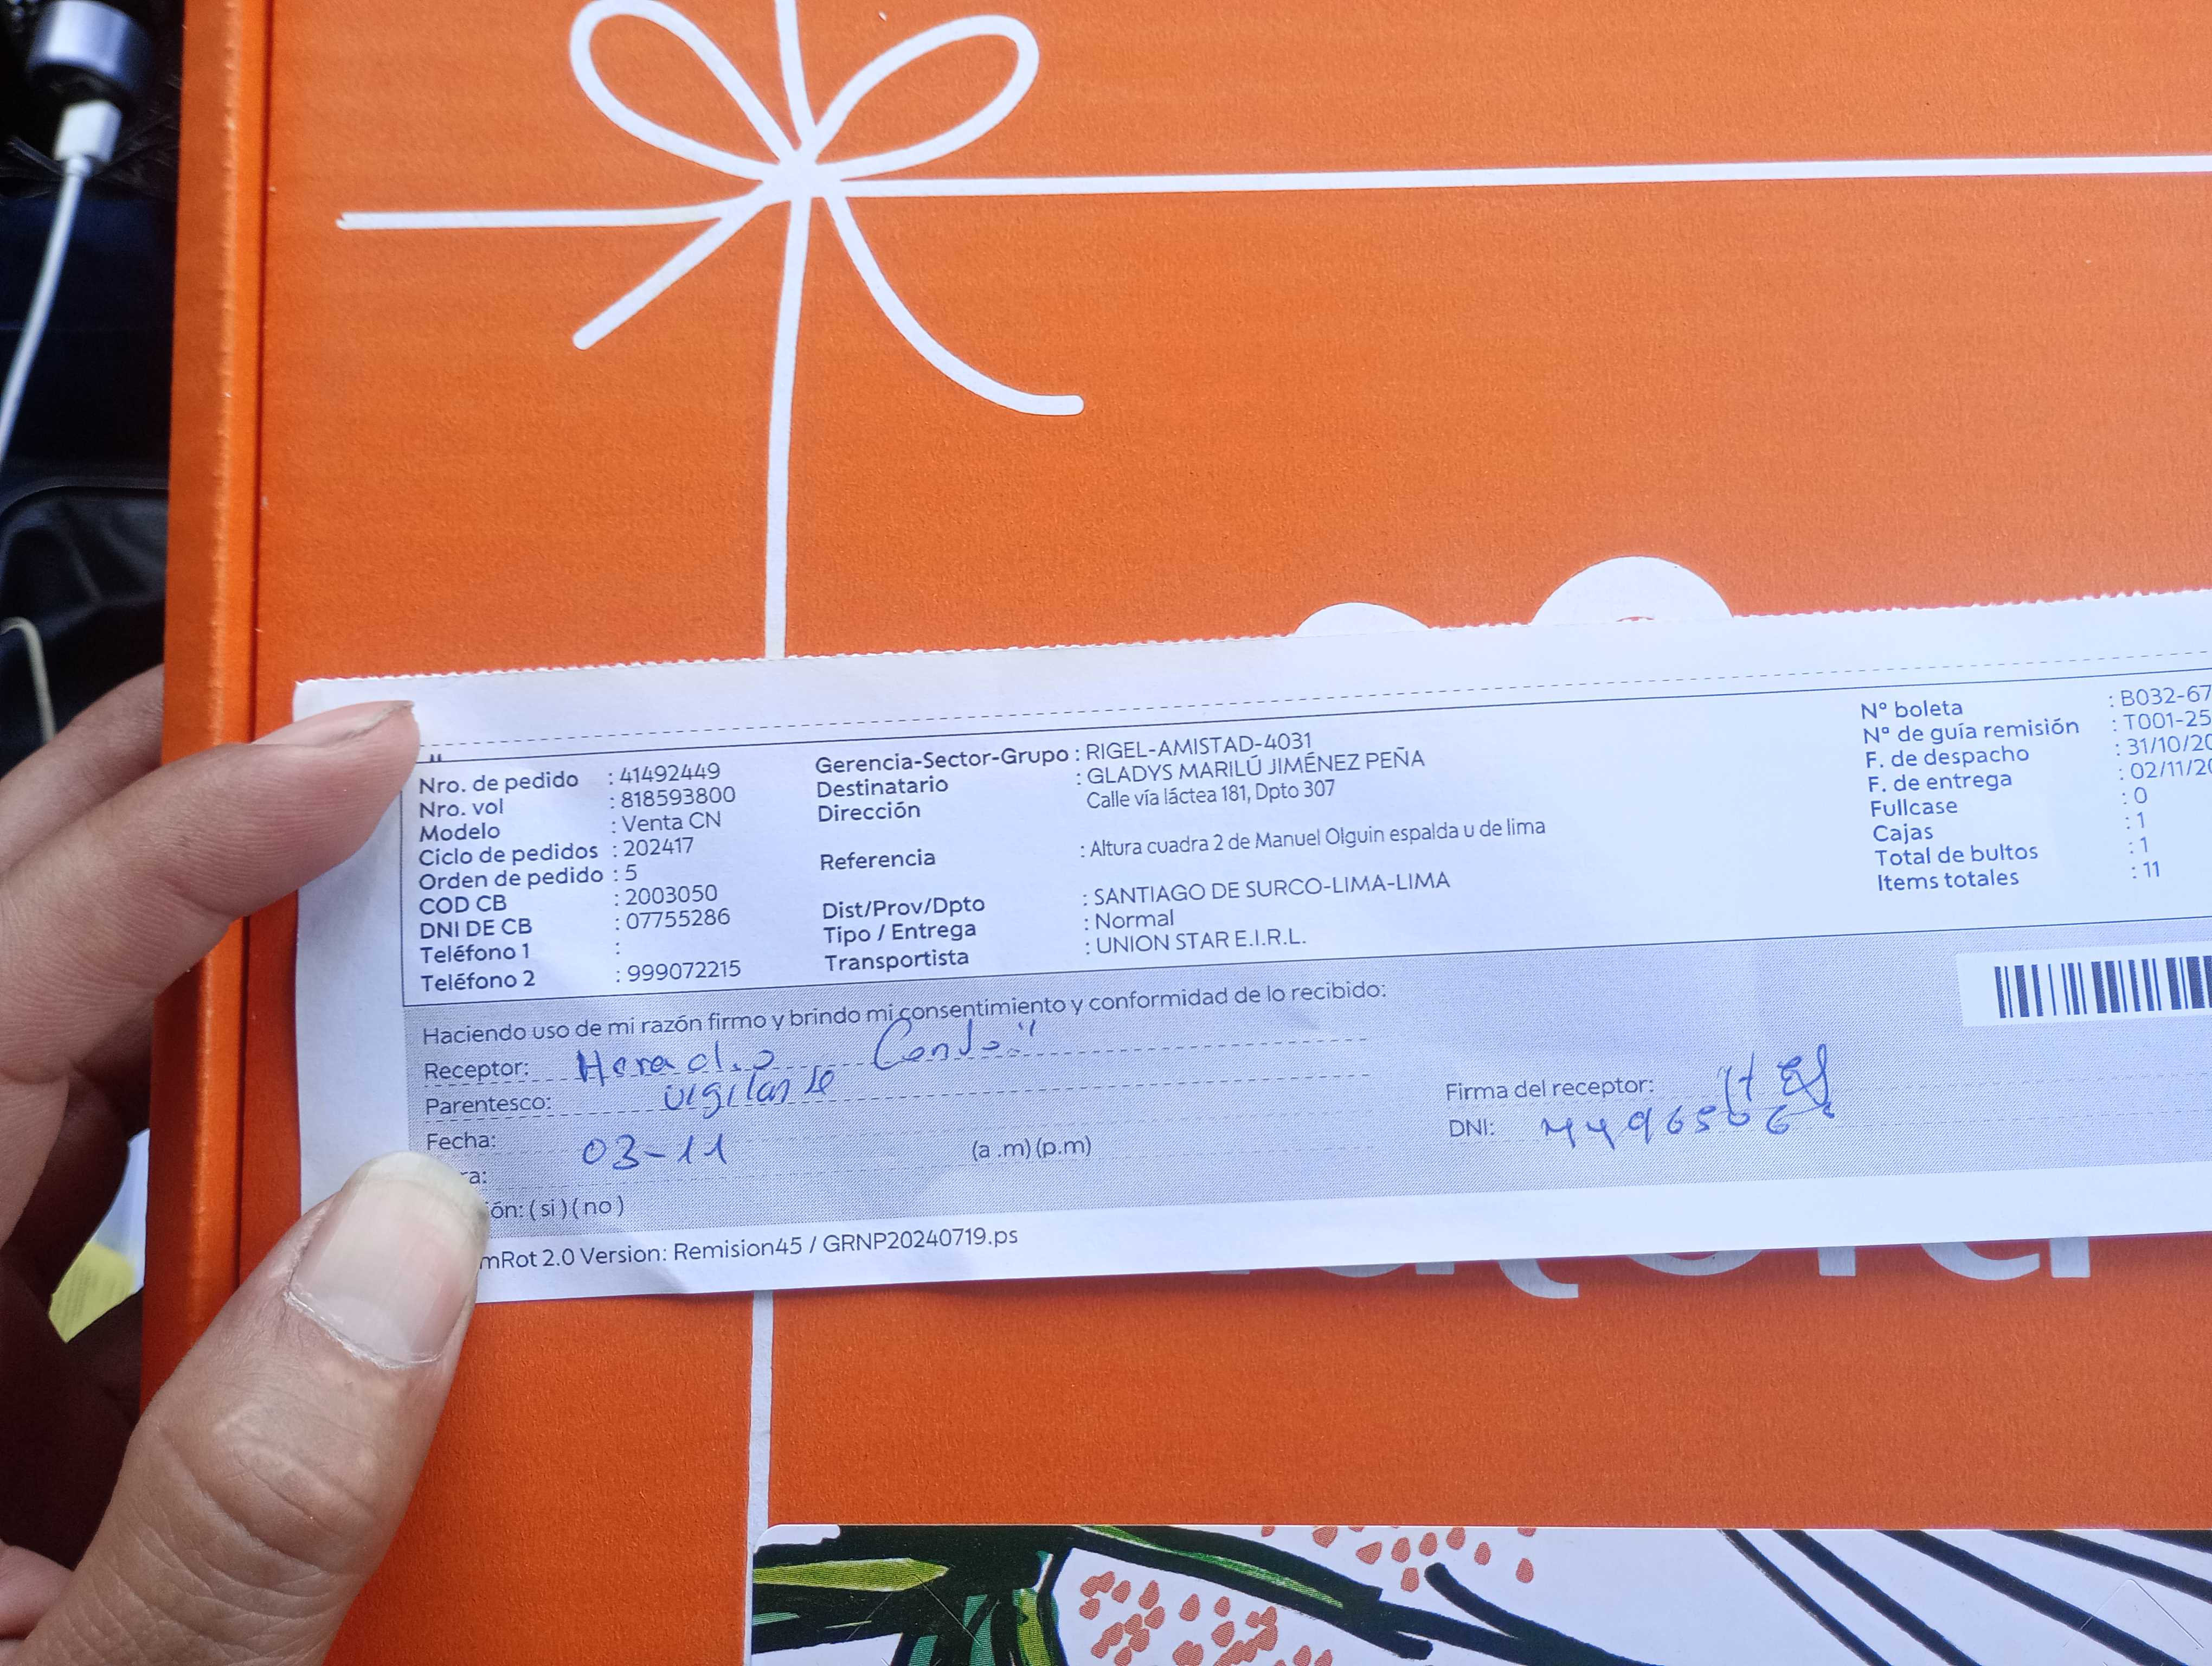 Nro. de pedido : 41492449
Nro. vol : 818593800
Modelo : Venta CN
Ciclo de pedidos : 202417
Orden de pedido : 5
COD CB : 2003050
DNI DE CB : 07755286
Teléfono 1 :
Teléfono 2 : 999072215
Gerencia-Sector-Grupo : RIGEL-AMISTAD-4031
Destinatario : GLADYS MARILÚ JIMÉNEZ PEÑA
Dirección Calle vía láctea 181, Dpto 307
Referencia : Altura cuadra 2 de Manuel Olguin espalda u de lima
Dist/Prov/Dpto : SANTIAGO DE SURCO-LIMA-LIMA
Tipo / Entrega : Normal
Transportista : UNION STAR E.I.R.L.
N° boleta : B032-67
N° de guía remisión : T001-25
F. de despacho : 31/10/20
F. de entrega : 02/11/20
Fullcase : 0
Cajas : 1
Total de bultos : 1
Items totales : 11
Haciendo uso de mi razón firmo y brindo mi consentimiento y conformidad de lo recibido:
Receptor:
Parentesco: vigilante
Fecha: 03-11
ra: (a .m) (p.m)
ón: ( si ) ( no )
Firma del receptor:
DNI:
mRot 2.0 Version: Remision45 / GRNP20240719.ps